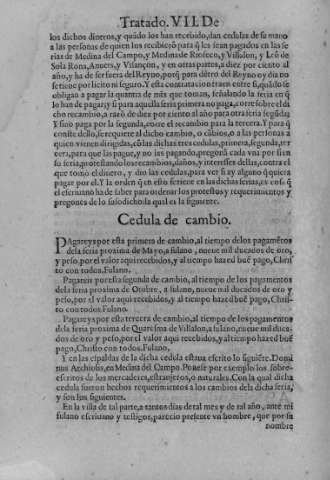 Tratado. VII. De
los dichos dineros, y quãdo los han recebido, dan cedulas de su mano
a las personas de quien los recibierõ para q̃ les sean pagados en las fe
rias de Medina del Campo, y Medina de Rioseco, y Villalon, y Leõ de
Sola Rona, Anuers, y Visançon, y en otras partes, a diez por ciento al
año, y ha de ser fuera del Reyno, porq̃ para dẽtro del Reyno oy dia no
se tiene por licito ni seguro. Y esta contratacion traen entre si, quãdo se
obligan a pagar la quantia de mrs que toman, señalando la feria en q̃
lo han de pagar: y si para aquella feria primera no paga, corre sobre el di
cho recambio, a razõ de diez por ciento al año para otra feria segũda;
Y sino paga por la segunda, corre el recambio para la tercera. Y para q̃
conste dello, se requiere al dicho cambio, o cãbios, o a las personas a
quien vienen dirigidas, cõ las dichas tres cedulas, primera, segunda, ter
cera, para que las pague, y no las pagando, pregonã cada vna por si en
su feria, protestando los recambios, daños, y interesses dellas, contra el
que tomo el dinero, y dio las cedulas, para ver si ay alguno q̃ quiera
pagar por el. Y la orden q̃ en esto se tiene en las dichas ferias, es cosa q̃
el escriuano ha de saber para ordenar los protestos y requerimientos y
pregones de lo susodicho la qual es la siguiente.
Cedula de cambio.
PAgareys por esta primera de cambio, al tiempo de los pagamẽtos
dela feria proxima de Mayo, a fulano, nueue mil ducados de oro,
y peso, por el valor aqui recebidos, y al tiempo hazed buẽ pago, Chris
to con todos. Fulano.
Pagareis por esta segunda de cambio, al tiempo de los pagamentos
dela feria proxima de Otubre, a fulano, nueue mil ducados de oro y
peso, por el valor aqui recebidos, y al tiempo hazed buẽ pago, Chris-
to con todos. Fulano.
Pagareys por esta tercera de cambio, al tiempo de los pagamentos
dela feria proxima de Quaresma de Villalon, a fulano, nueue mil duca-
dos de oro y peso, por el valor aqui recebidos, y al tiempo hazed buẽ
pago, Christo con todos. Fulano.
Y en las espaldas de la dicha cedula estaua escrito lo siguiẽte. Domi
nus en Medina del Campo. Ponese por exemplo los sobre-
escritos de los mercaderes, estrangeros, o naturales. Con la qual dicha
cedula fueron hechos requerimientos a los cambios dela dicha feria,
y son los siguientes.
En la villa de tal parte, a tantos dias de tal mes y de tal año, ante mi
fulano escriuano y testigos, parecio presente vn hombre, que por su
nombre